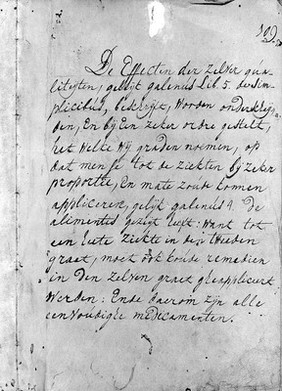 109.
De Effecten der zelver qua-
liteyten, gelijk galenus Lib. 5. de sim-
plicibus, beschrijft, worden onderscheij-
den, En bij Een zeker ordre gestelt,
het welke wij graden noemen, op
dat men se tot de ziekten bij zeker
proportie, En mate zoude konnen
appliceren, gelijk galenus 4. de
alimentis gezegt heeft: Want tot
een hete ziekte in den tweeden
graet, moet ook koude remedien
in den zelven graet geappliceert
werden: Ende daerom zijn alle
eenvoudige medicamenten.